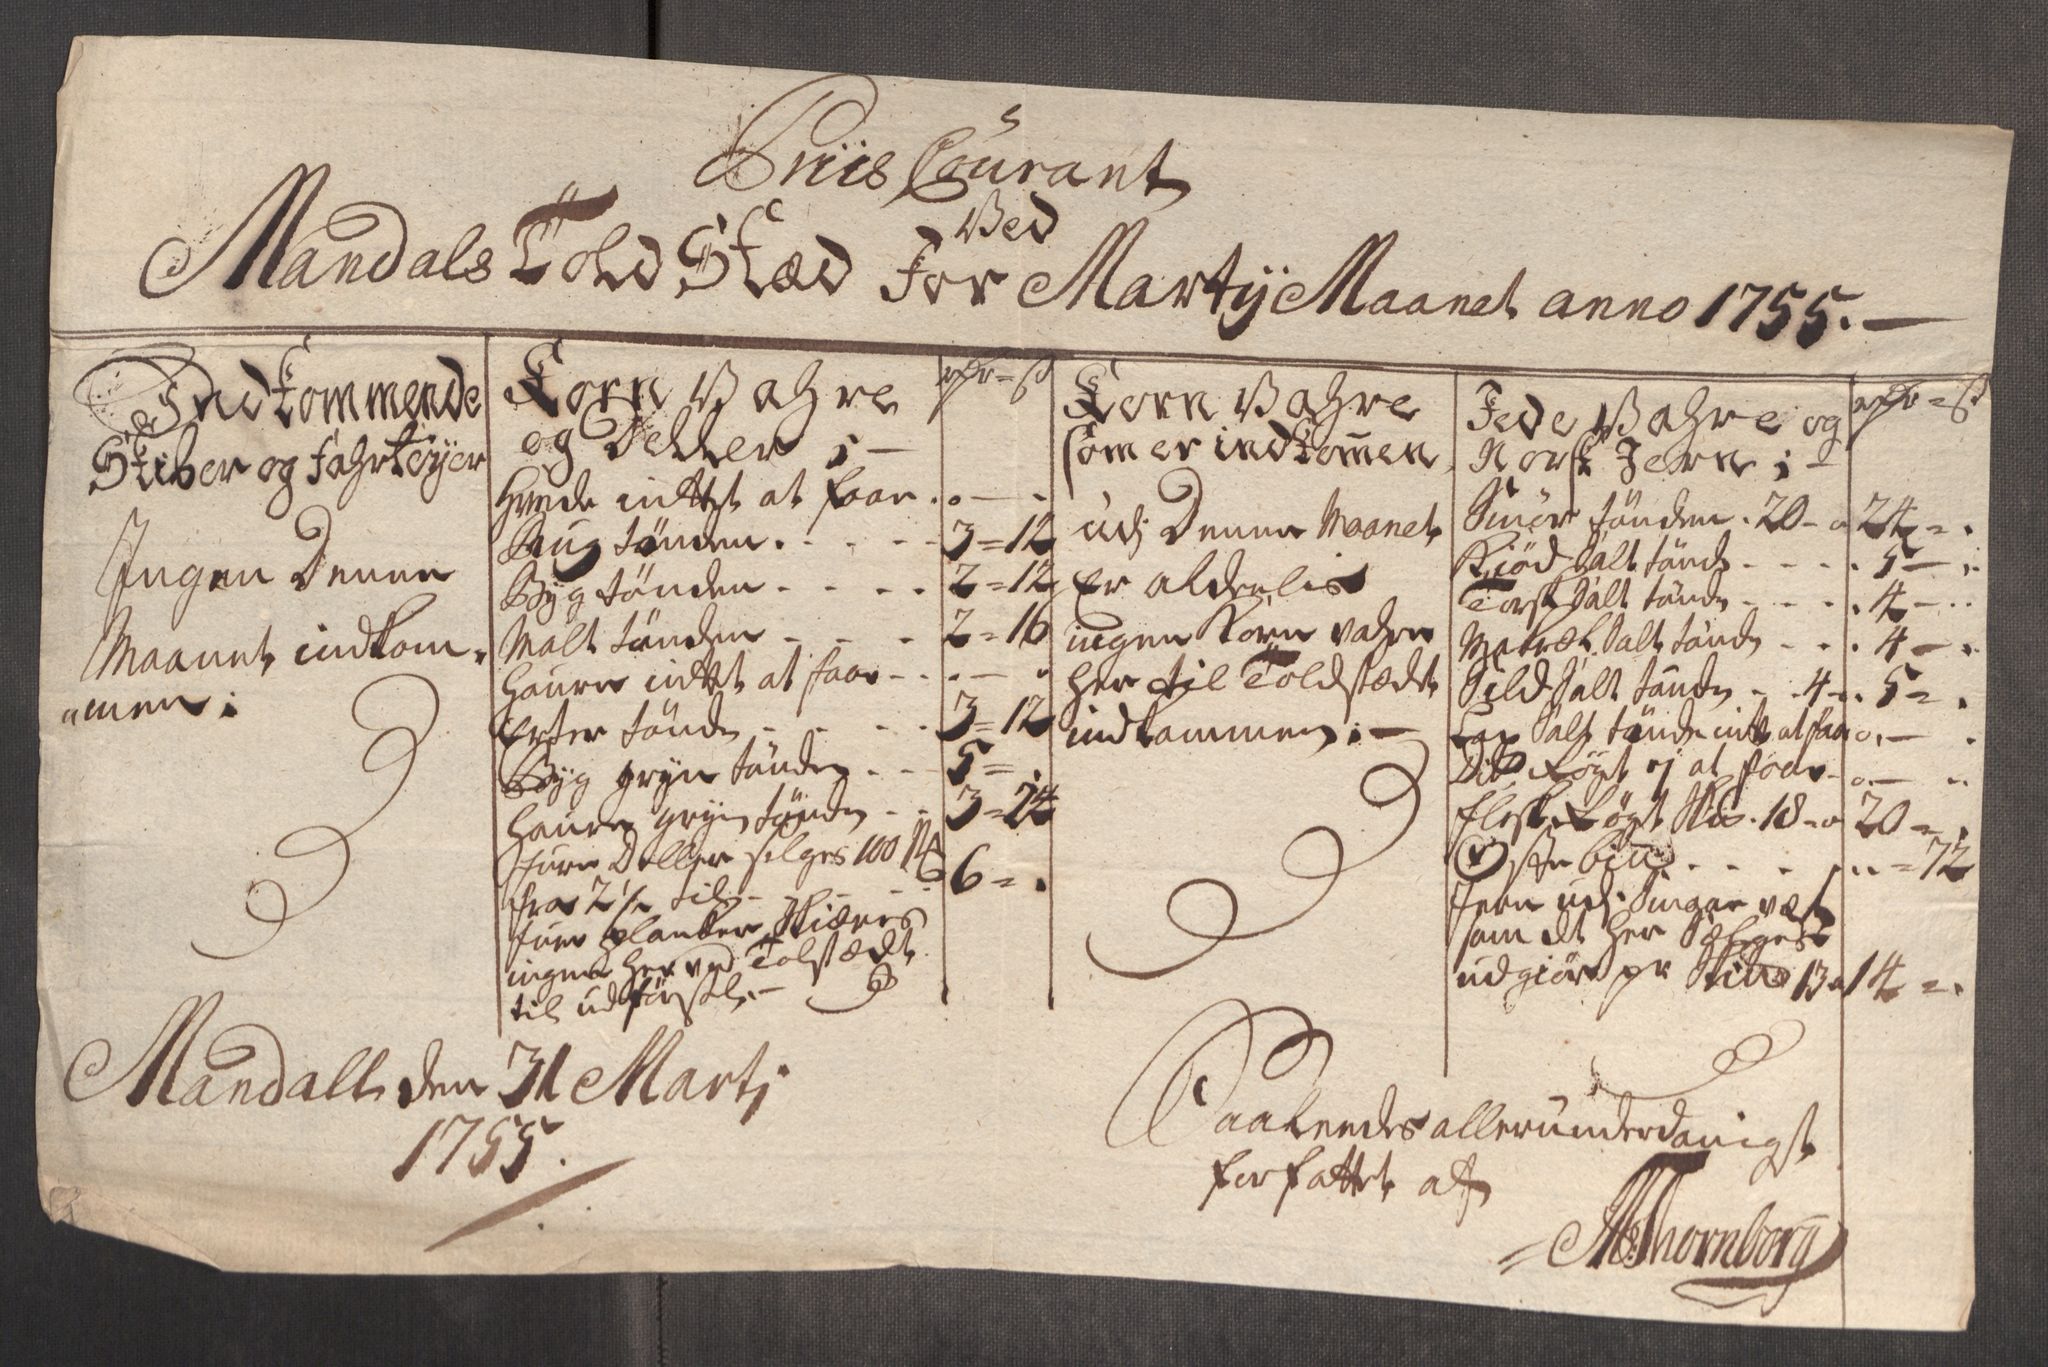 Priis Courant
Ved
Mandals Told Stæd for Martij Maanet anno 1755.
Indkommende
Skiber og fahrtøyer
Ingen Denne
Maanet indkom-
men:
Korn Vahre
og Deller
Hvede intet at faae
Rug tønden 3 = 12
Byg tønden 2 = 12
Malt tønden 2 = 16
Haure intet at faae
Erter tønde 3 = 12
Byg gryn tønden 5 =
Haure gryn tønde 3 = 24
furu Deller selges 100
fra 2 til 6 =
furu planker Skiæres
ingen her ved Tolstædet
til udførsel.
Korn Vahre
som er indkommen
udj Denne Maanet
Er aldelis
ingen Korn vahre
her til Toldstædet
indkommen:
fede Vahre og
Norsk Jern:
Smør tønden 20 a 24 =
Kiød Salt tønde 5
Torsk Salt tønde 4
Makrel Salt tønde 4
Sild Salt tønde 4 a 5 =
Lax Salt tønde intet at faae
Dito Røgt ej at faae
flesk Røgt 18 a 20 =
Oste = 72
Jern udj
som det her Sælges
udgiør pr 13 a 14 =
Mandall den 31 Martj
1755.
Saaledes allerunderdanigst
forfattet af
Thornborg